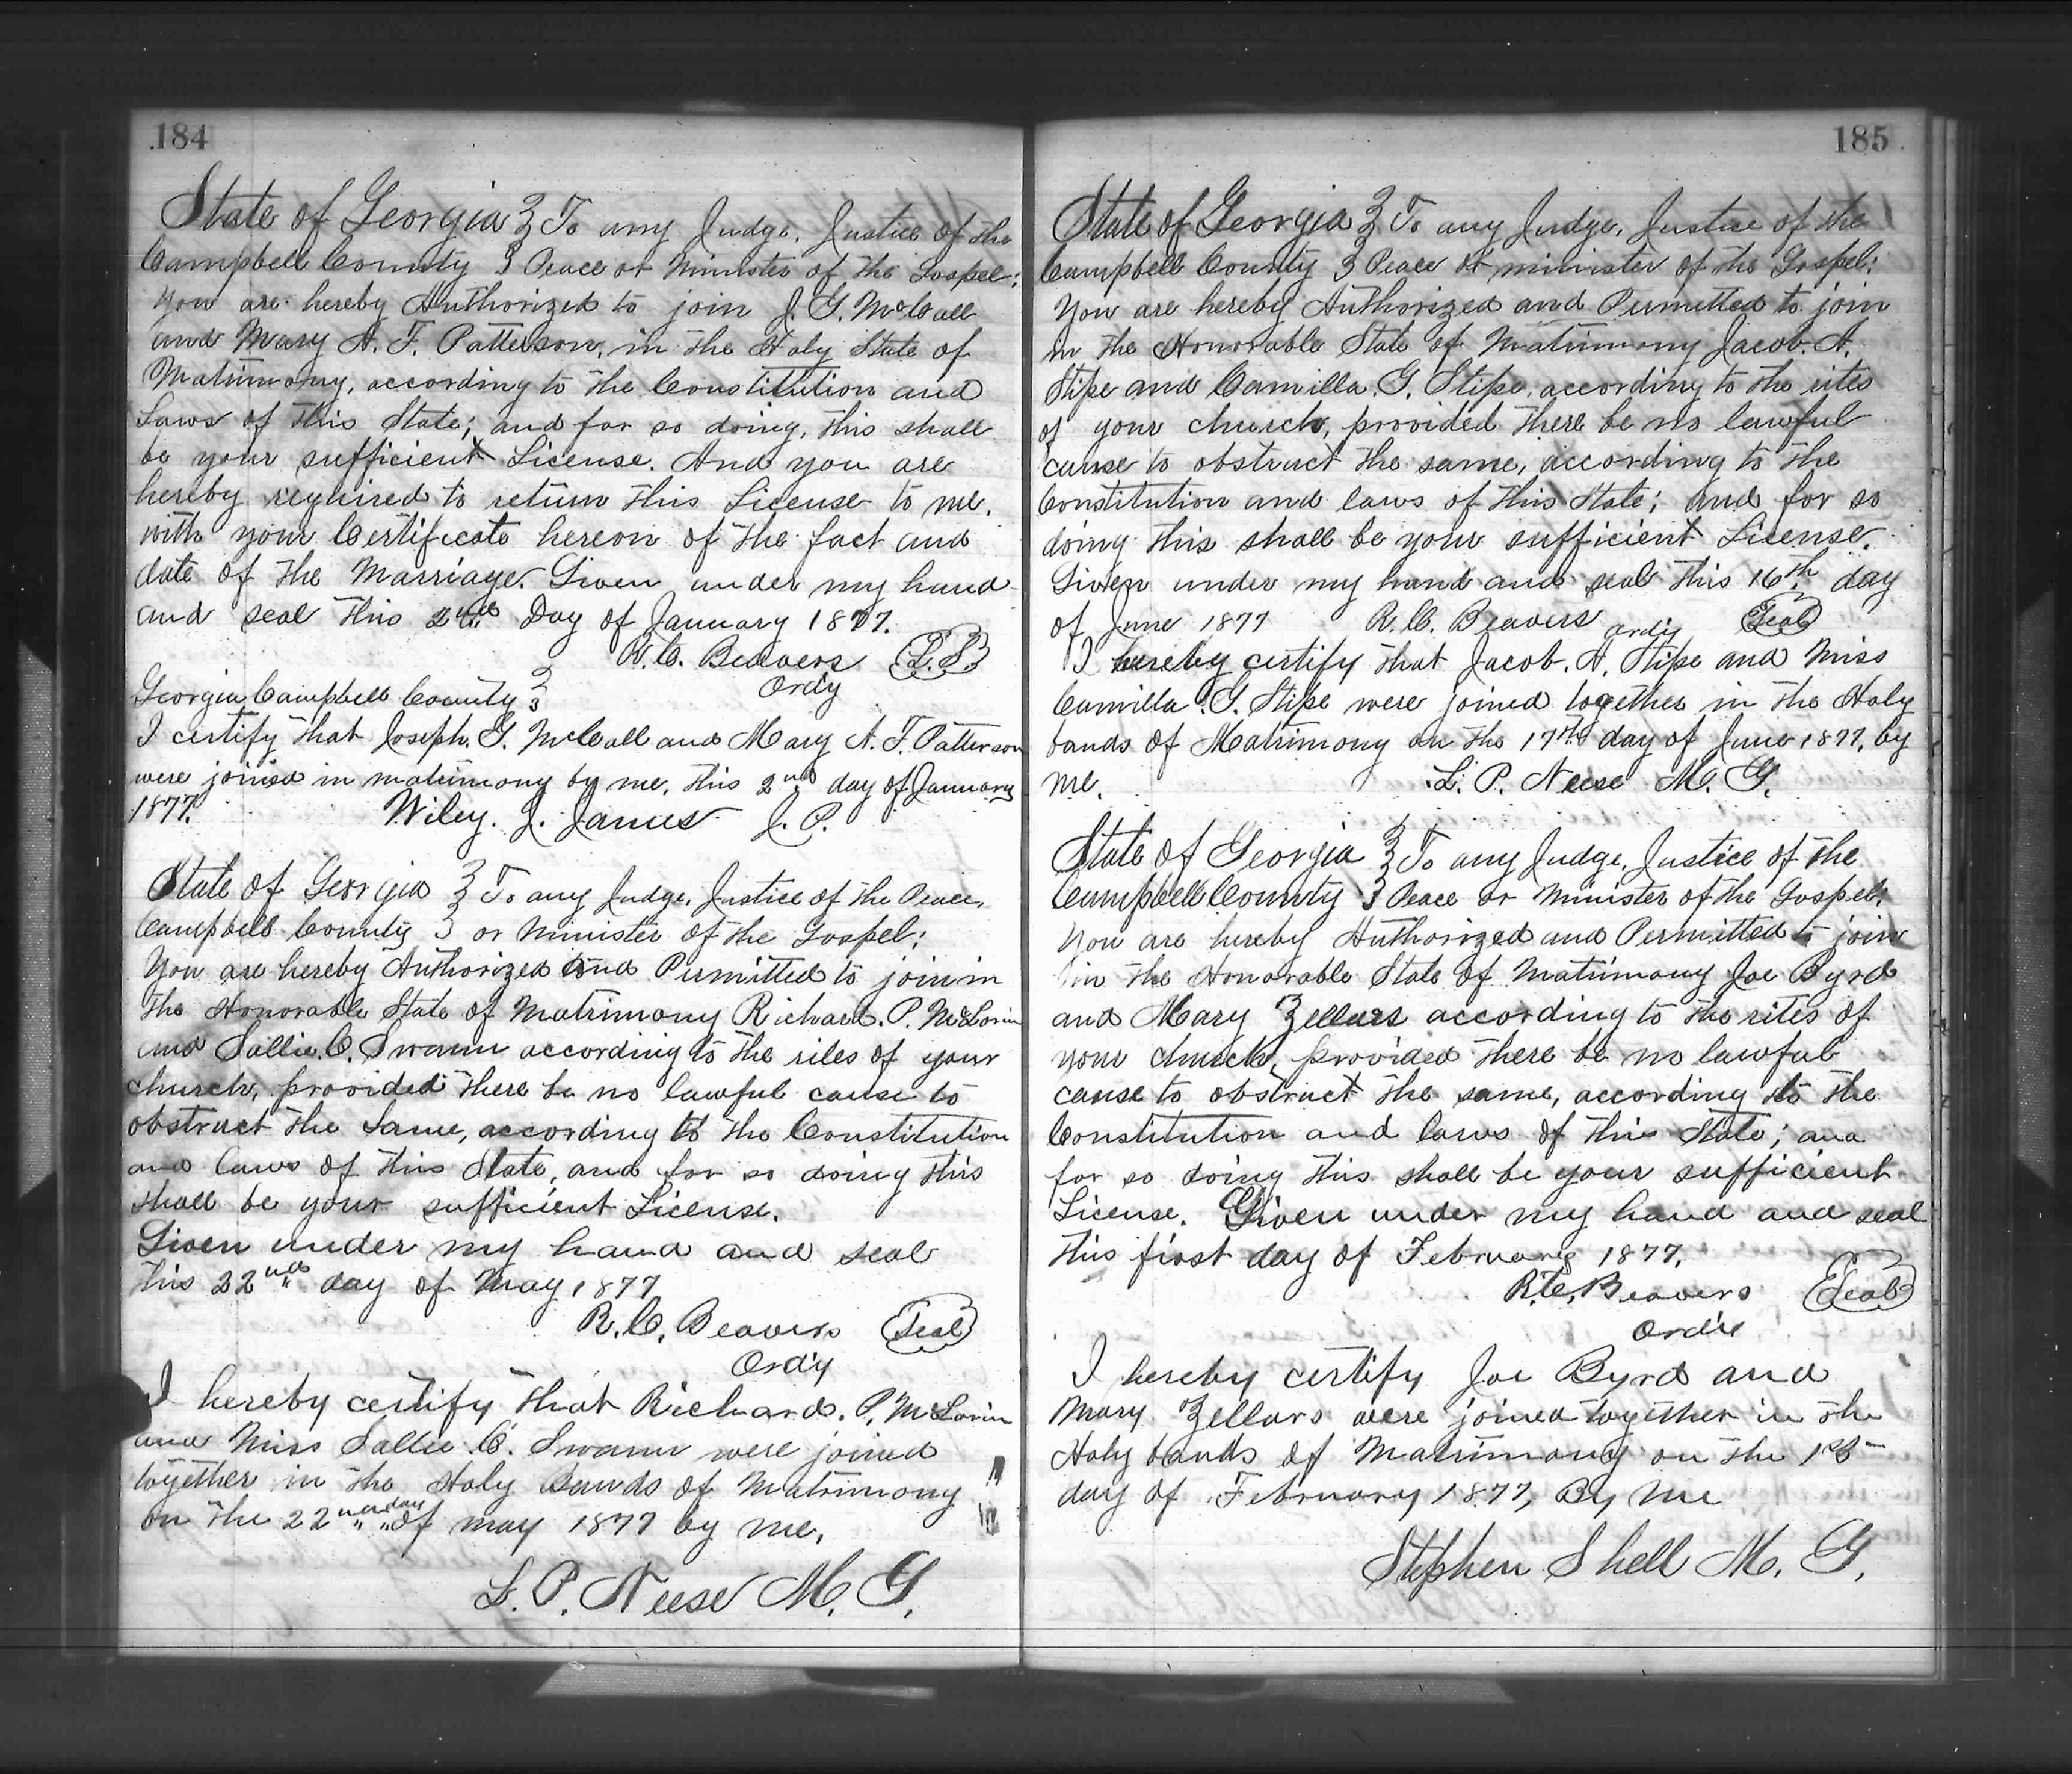 184
State of Georgia } To any Judge, Justice of the
Campbell County } Peace or Minister of the Gospel:
You are hereby Authorized to join J. G. McCall
and Mary A. F. Patterson, in the Holy State of
Matrimony, according to the Constitution and
Laws of this State; and for so doing, this shall
be your sufficient License. And you are
hereby required to return this License to me,
with your Certificate hereon of the fact and
date of the Marriage. Given under my hand
and seal this 2nd Day of January 1877.
R. C. Beavers L.S.
Ordy
Georgia Campbell County }
I certify that Joseph. G. McCall and Mary A. F. Patterson
were joined in matrimony by me, this 2nd day of January
1877. Wiley. J. James J. P.
State of Georgia } To any Judge, Justice of the Peace,
Campbell County } or Minister of the Gospel:
You are hereby Authorized and Permitted to join in
the Honorable State of Matrimony Richard. P. McLorin
and Sallie. C. Swann according to the rites of your
church, provided there be no lawful cause to
obstruct the same, according to the Constitution
and laws of this State, and for so doing this
shall be your sufficient License.
Given under my hand and seal
this 22nd day of May 1877
R. C. Beavers Seal
Ord'y
I hereby certify that Richard. P. McLorin
and Miss Sallie C. Swann were joined
together in the Holy Bands of Matrimony
on the 22nd day of May 1877 by me,
L. P. Neese M. G.
185
State of Georgia } To any Judge, Justice of the
Campbell County } Peace or minister of the Gospel:
You are hereby Authorized and Permitted to join
in the Honorable State of Matrimony Jacob. A.
Stipe and Camilla. G. Stipe, according to the rites
of your church, provided there be no lawful
cause to obstruct the same, according to the
Constitution and laws of this State; and for so
doing this shall be your sufficient License.
Given under my hand and seal this 16th day
of June 1877 R. C. Beavers Ordy Seal
I hereby certify that Jacob. A. Stipe and Miss
Camilla. G. Stipe were joined together in the Holy
bands of Matrimony on the 17th day of June 1877, by
me. L. P. Neese M. G.
State of Georgia } To any Judge, Justice of the
Campbell County } Peace or Minister of the Gospel:
You are hereby Authorized and Permitted to join
in the Honorable State of Matrimony Joe Byrd
and Mary Zellars according to the rites of
your church, provided there be no lawful
cause to obstruct the same, according to the
Constitution and laws of this State; and
for so doing this shall be your sufficient
License. Given under my hand and seal
this first day of February 1877.
R. C. Beavers Seal
Ord'y
I hereby certify Joe Byrd and
Mary Zellars were joined together in the
Holy bands of Matrimony on the 1st
day of February 1877, By me
Stephen Shell M. G.